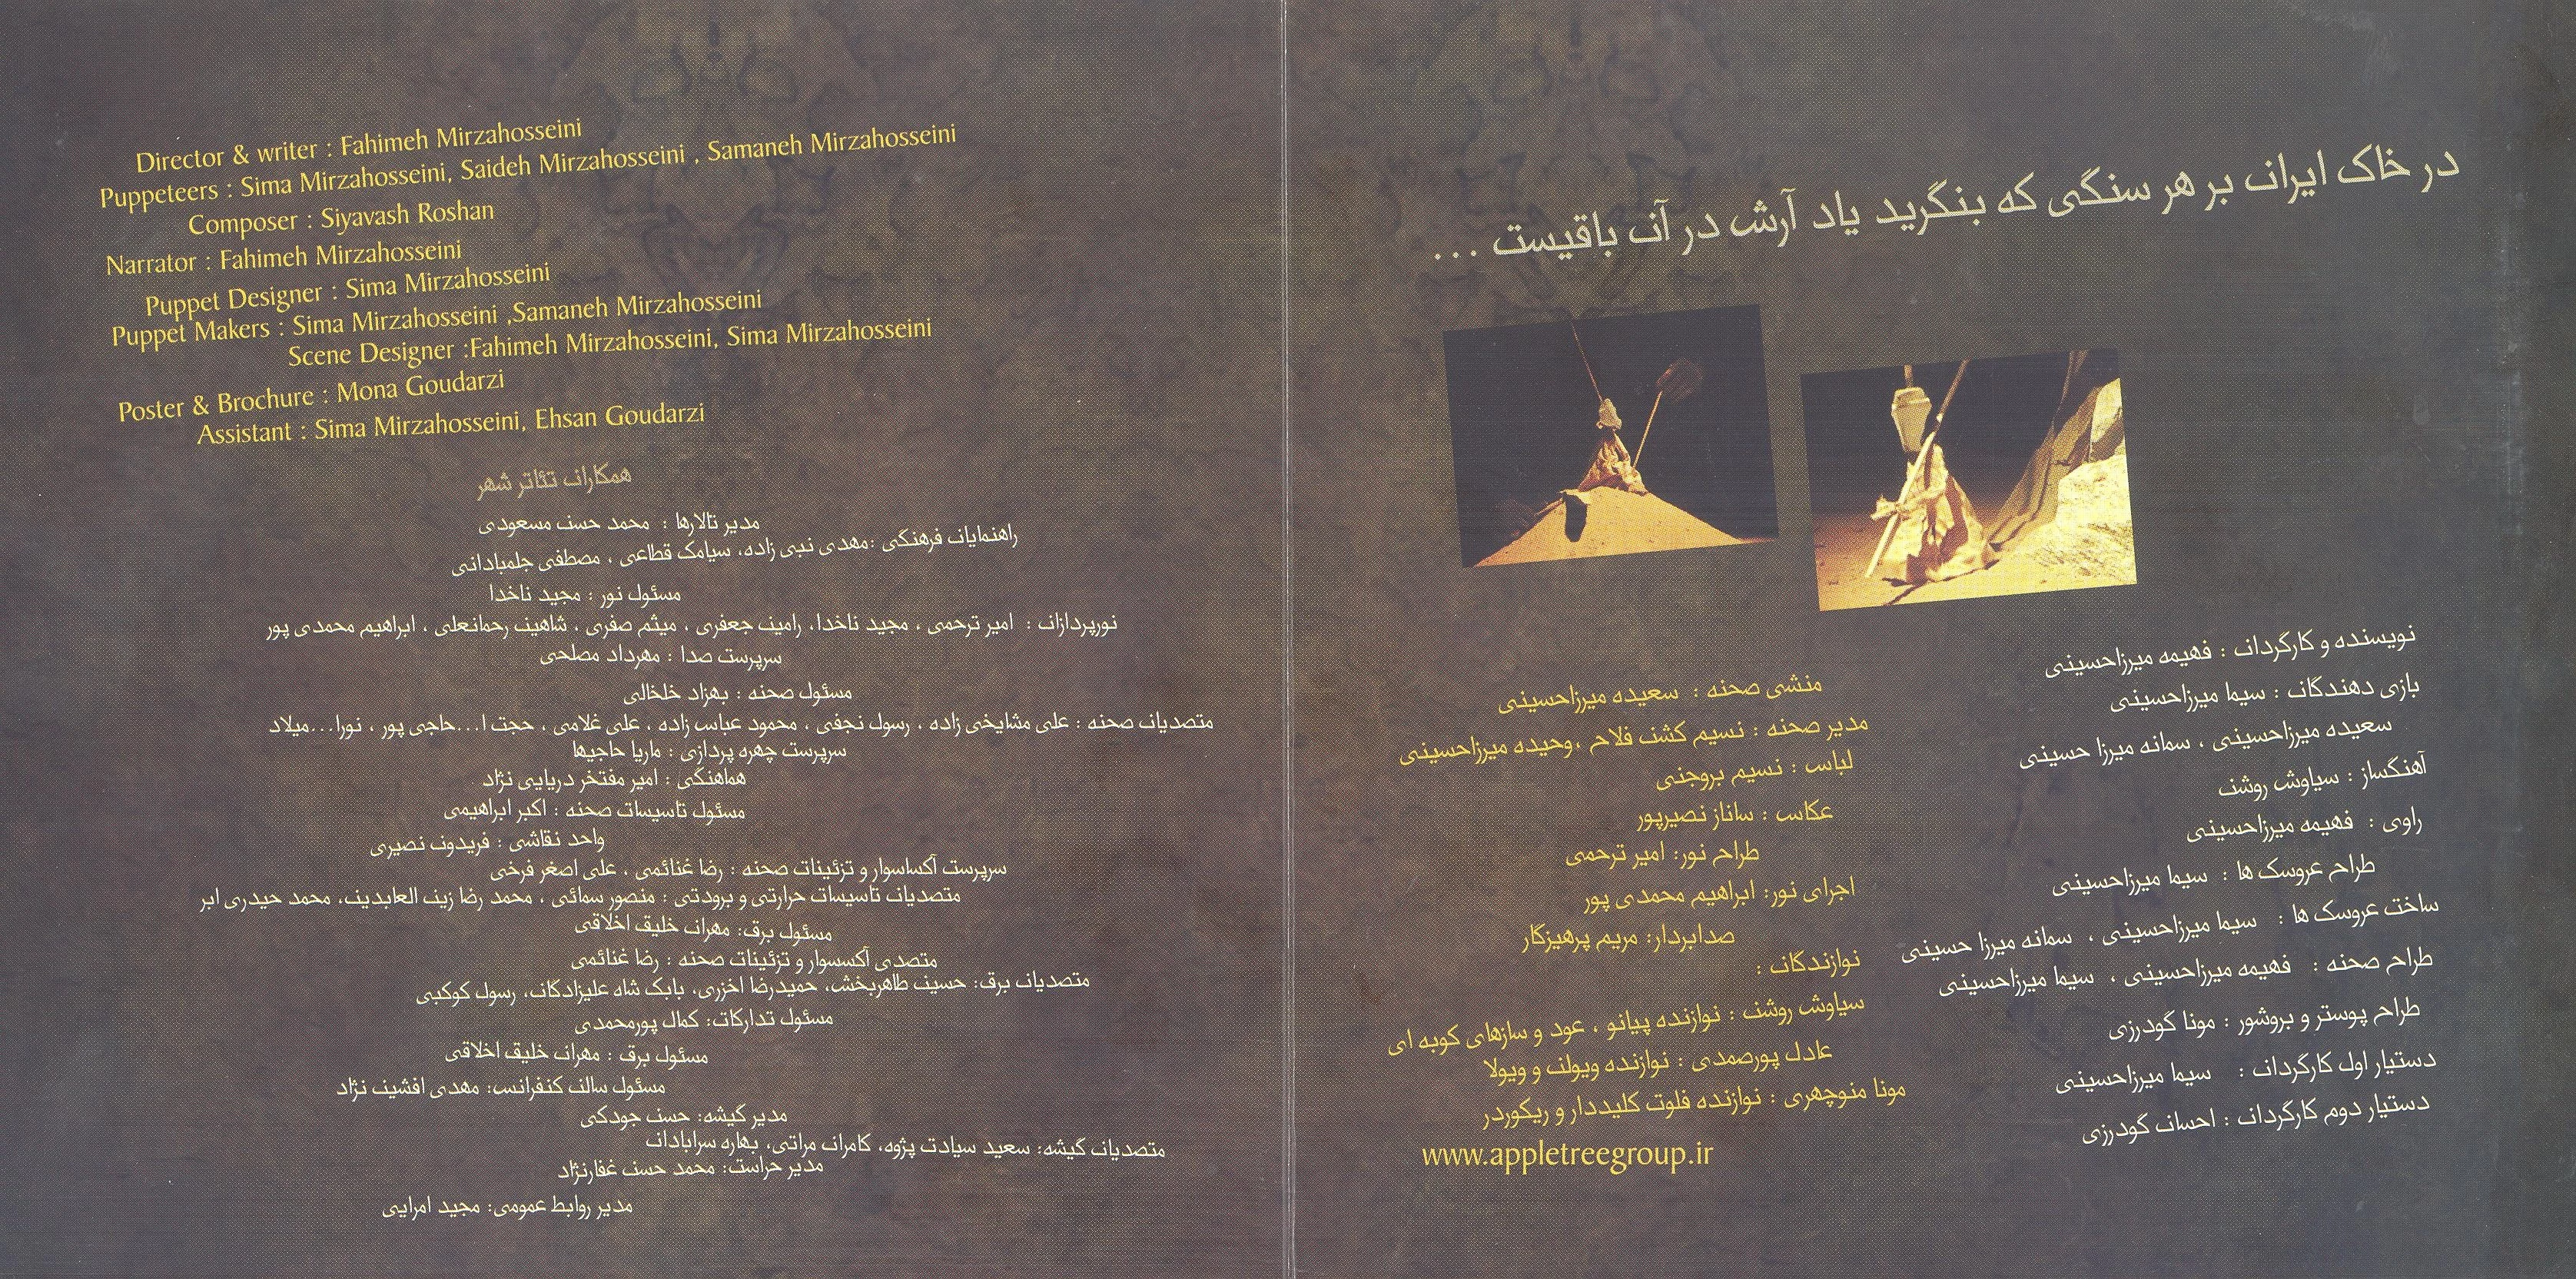 Director & writer : Fahimeh Mirzahosseini
Puppeteers : Sima Mirzahosseini, Saideh Mirzahosseini , Samaneh Mirzahosseini
Composer : Siyavash Roshan
Narrator : Fahimeh Mirzahosseini
Puppet Designer : Sima Mirzahosseini
Puppet Makers : Sima Mirzahosseini ,Samaneh Mirzahosseini
Scene Designer :Fahimeh Mirzahosseini, Sima Mirzahosseini
Poster & Brochure : Mona Goudarzi
Assistant : Sima Mirzahosseini, Ehsan Goudarzi
همکاران تئاتر شهر
مدیر تالارها : محمد حسن مسعودی
راهنمایان فرهنگی :مهدی نبی زاده، سیامک قطاعی ، مصطفی جلمبادانی
مسئول نور : مجید ناخدا
نورپردازان : امیر ترحمی ، مجید ناخدا، رامین جعفری ، میثم صفری ، شاهین رحمانعلی ، ابراهیم محمدی پور
سرپرست صدا : مهرداد مصلحی
مسئول صحنه : بهزاد خلخالی
متصدیان صحنه : علی مشایخی زاده ، رسول نجفی ، محمود عباس زاده ، علی غلامی ، حجت ا...حاجی پور ، نورا...میلاد
سرپرست چهره پردازی : ماریا حاجیها
هماهنگی : امیر مفتخر دریایی نژاد
مسئول تاسیسات صحنه : اکبر ابراهیمی
واحد نقاشی : فریدون نصیری
سرپرست آکساسوار و تزئینات صحنه : رضا غنائمی ، علی اصغر فرخی
متصدیان تاسیسات حرارتی و برودتی : منصور سمائی ، محمد رضا زین العابدین، محمد حیدری ابر
مسئول برق: مهران خلیق اخلاقی
متصدی آکسسوار و تزئینات صحنه : رضا غنائمی
متصدیان برق: حسین طاهربخش، حمیدرضا اخزری، بابک شاه علیزادگان، رسول کوکبی
مسئول تدارکات: کمال پورمحمدی
مسئول برق : مهران خلیق اخلاقی
مسئول سالن کنفرانس: مهدی افشین نژاد
مدیر گیشه: حسن جودکی
متصدیان گیشه: سعید سیادت پژوه، کامران مراتی، بهاره سرابادان
مدیر حراست: محمد حسن غفارنژاد
مدیر روابط عمومی: مجید امرایی
در خاک ایران بر هر سنگی که بنگرید یاد آرش در آن باقیست ...
نویسنده و کارگردان : فهیمه میرزاحسینی
بازی دهندگان : سیما میرزاحسینی
سعیده میرزاحسینی ، سمانه میرزا حسینی
آهنگساز : سیاوش روشن
راوی : فهیمه میرزاحسینی
طراح عروسک ها : سیما میرزاحسینی
ساخت عروسک ها : سیما میرزاحسینی ، سمانه میرزا حسینی
طراح صحنه : فهیمه میرزاحسینی ، سیما میرزاحسینی
طراح پوستر و بروشور : مونا گودرزی
دستیار اول کارگردان : سیما میرزاحسینی
دستیار دوم کارگردان : احسان گودرزی
منشی صحنه : سعیده میرزاحسینی
مدیر صحنه : نسیم کشن فلاح ،وحیده میرزاحسینی
لباس : نسیم بروجنی
عکاس : ساناز نصیرپور
طراح نور: امیر ترحمی
اجرای نور: ابراهیم محمدی پور
صدابردار: مریم پرهیزگار
نوازندگان :
سیاوش روشن : نوازنده پیانو ، عود و سازهای کوبه ای
عادل پورصمدی : نوازنده ویولن و ویولا
مونا منوچهری : نوازنده فلوت کلیددار و ریکوردر
www.appletreegroup.ir